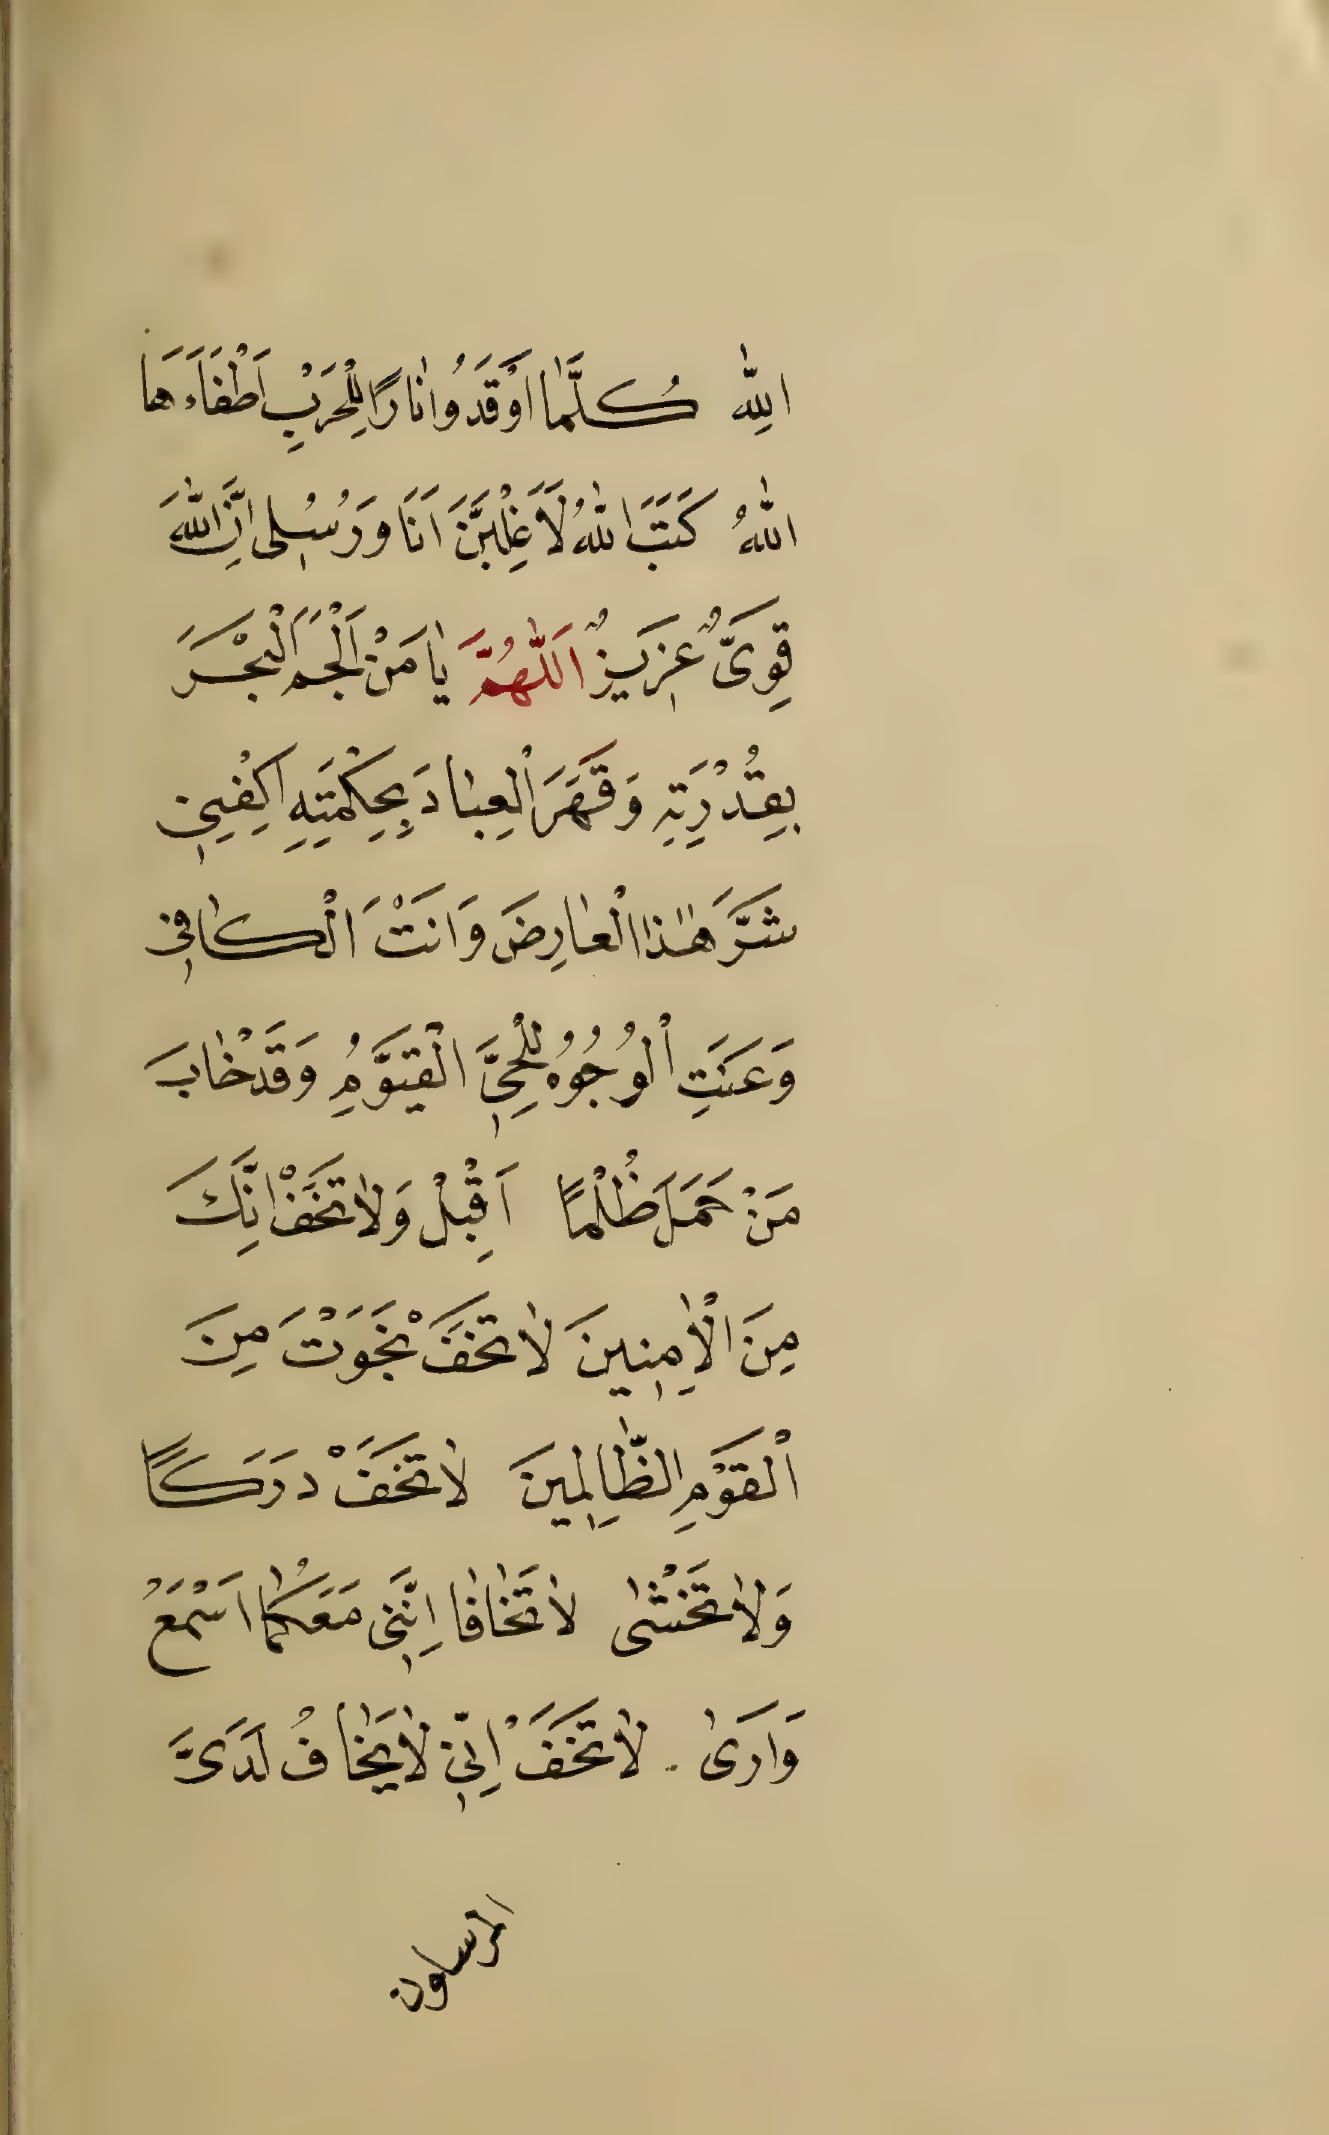 اللهِ كُلَّمٰا اَوْقَدُوا نٰارًا لِلْحَرْبِ اَطْفَاَءَهَا
اللّٰهُ كَتَبَ اللّٰهُ لَاَغْلِبَنَّ اَنَا وَرُسُلِى اِنَّ اللّٰهَ
قَوِىٌّ عَزِيزٌ اَللّٰهُمَّ يٰا مَنْ اَلْجَمَ الْبَحْرَ
بِقُدْرَتِهِ وَقَهَرَ الْعِبٰادَ بِحِكْمَتِهِ اكْفِينِى
شَرَّ هٰذَا الْعٰارِضَ وَاَنْتَ الْكٰافِى
وَعَنَتِ الْوُجُوهُ لِلْحَىِّ الْقَيُّومِ وَقَدْ خٰابَ
مَنْ حَمَلَ ظُلْمًا اَقْبِلْ وَلٰا تَخَفْ اِنَّكَ
مِنَ الْاٰمِنِينَ لٰا تَخَفْ نَجَوْتَ مِنَ
الْقَوْمِ الظّٰالِمِينَ لٰا تَخَفْ دَرَكًا
وَلٰا تَخْشٰى لٰا تَخٰافٰا اِنَّنِى مَعَكُمٰا اَسْمَعُ
وَاَرٰى . لٰا تَخَفْ اِنِّى لٰا يَخٰافُ لَدَىَّ
المرسلون